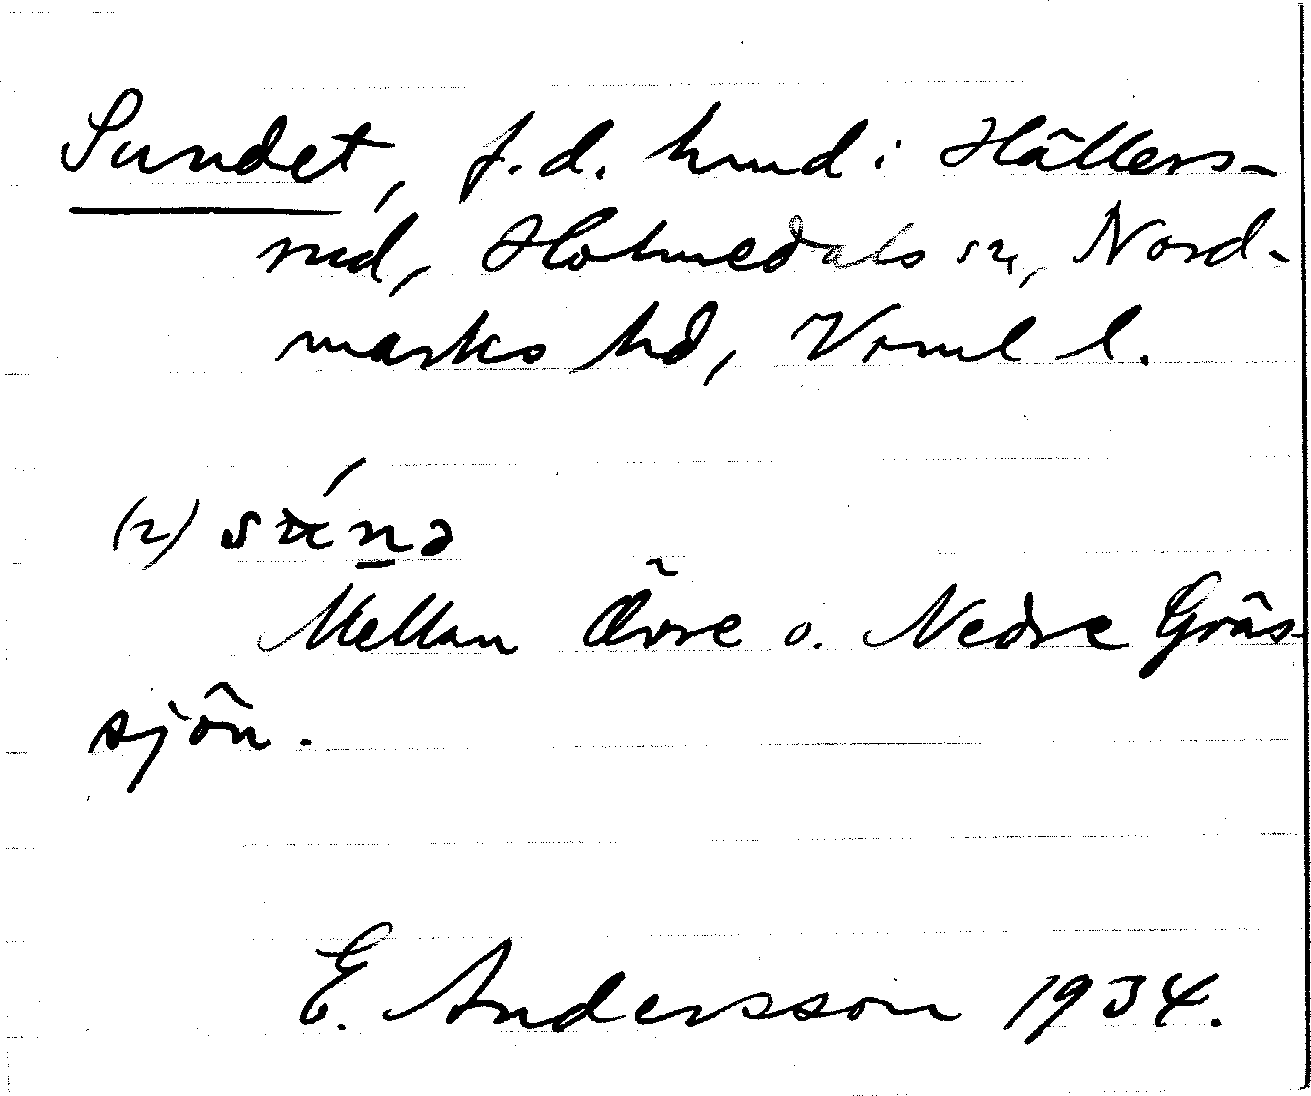 Sundet, f.d. hmd i Hällers-
rud, Holmedals sn, Nord-
marks hd, Verml l.
(2) su̍nə
Mellan Övre o. Nedre Gräs-
sjön.
E. Andersson 1934.